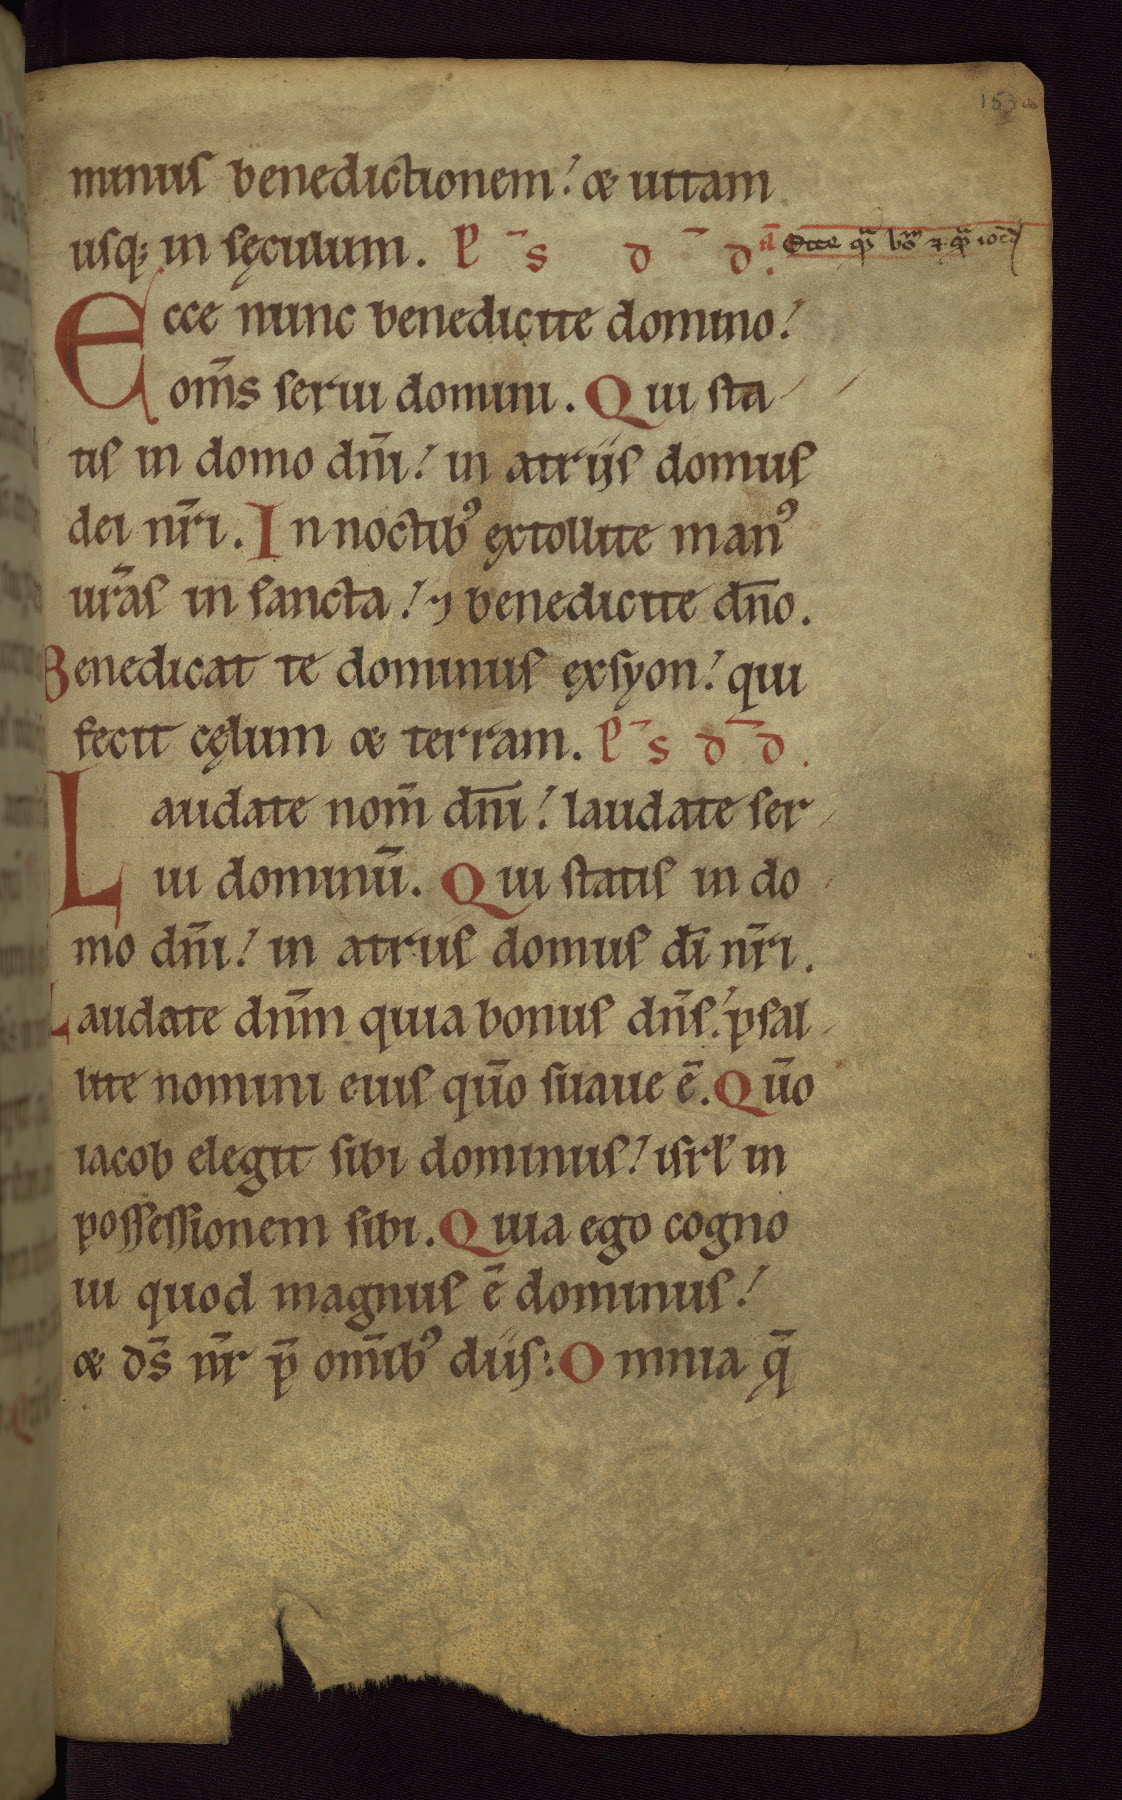 153
minus benedictionem! & uitam
usq; in sęculum. P̄ s d̄ d. ā Ecce q̄m bo͞m ⁊ q̄m ioc̄
Ecce nunc benedicite domino!
om̄s serui domini. Qui sta
tis in domo dn̄i! in atrijs domus
dei nr̄i. In noctibꝰ extollite manꝰ
ur̄as in sancta! ⁊ benedicite dn̄o.
Benedicat te dominus exsyon! qui
fecit cęlum & terram. P̄ s d̄ d.
Laudate nom̄ dn̄i! laudate ser
ui dominū. Qui statis in do
mo dn̄i! in atriis domus dī nr̄i.
Laudate dn̄m quia bonus dn̄s! psal
lite nomini eius qūo suaue ē. Qūo
iacob elegit sibi dominus! isrł in
possessionem sibi. Quia ego cogno
ui quod magnus ē dominus!
& ds̄ nr̄ p̄ om̄ibꝰ diis: Omnia q̄